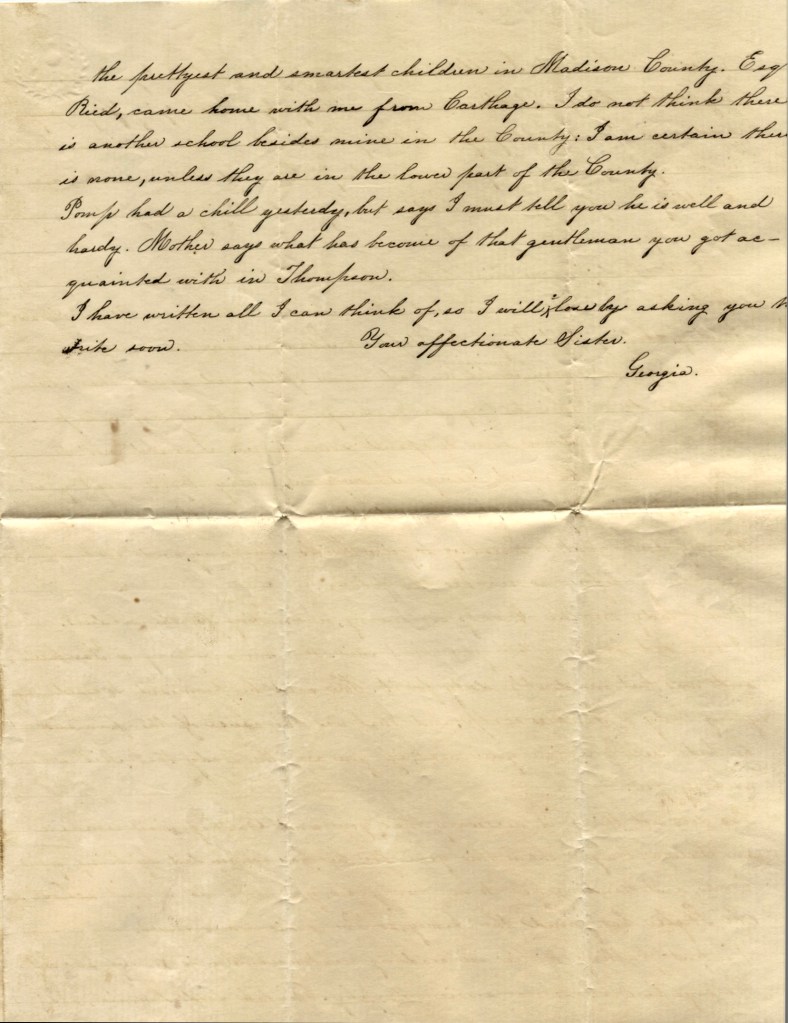 the prettyest and smartest children in Madison County. Esq
Ried, came home with me from Carthage. I do not think there
is another school besides mine in the County: I am certain there
is none, unless they are in the lower part of the County.
Pomp had a chill yesterdy, but says I must tell you he is well and
hardy. Mother says what has become of that gentleman you got ac-
quainted with in Thompson.
I have written all I can think of, so I will close by asking you to
write soon. Your affectionate Sister.
Georgia.